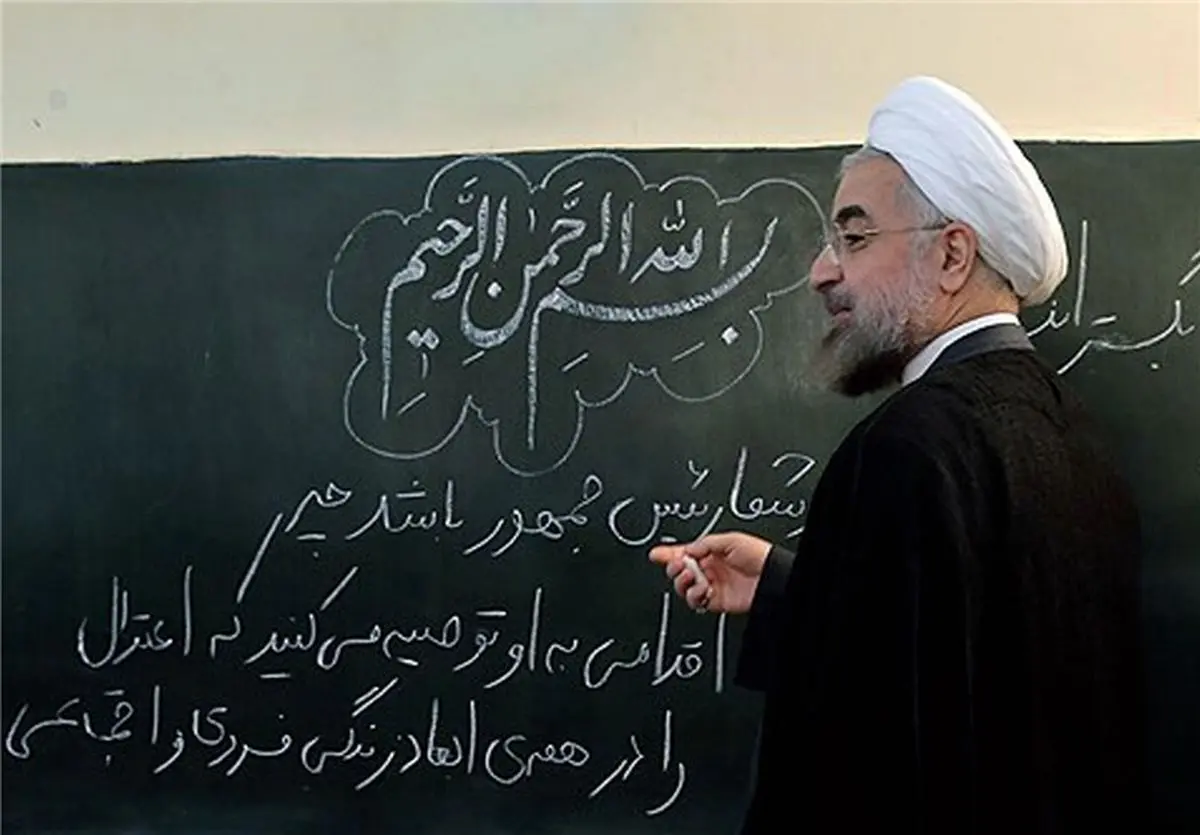 بسم الله الرحمن الرحیم
شعار رئیس جمهور باشد چه
اقدامی به او توصیه می کنید که اعتدال
را در همه ی ابعاد زندگی فردی و اجتماعی